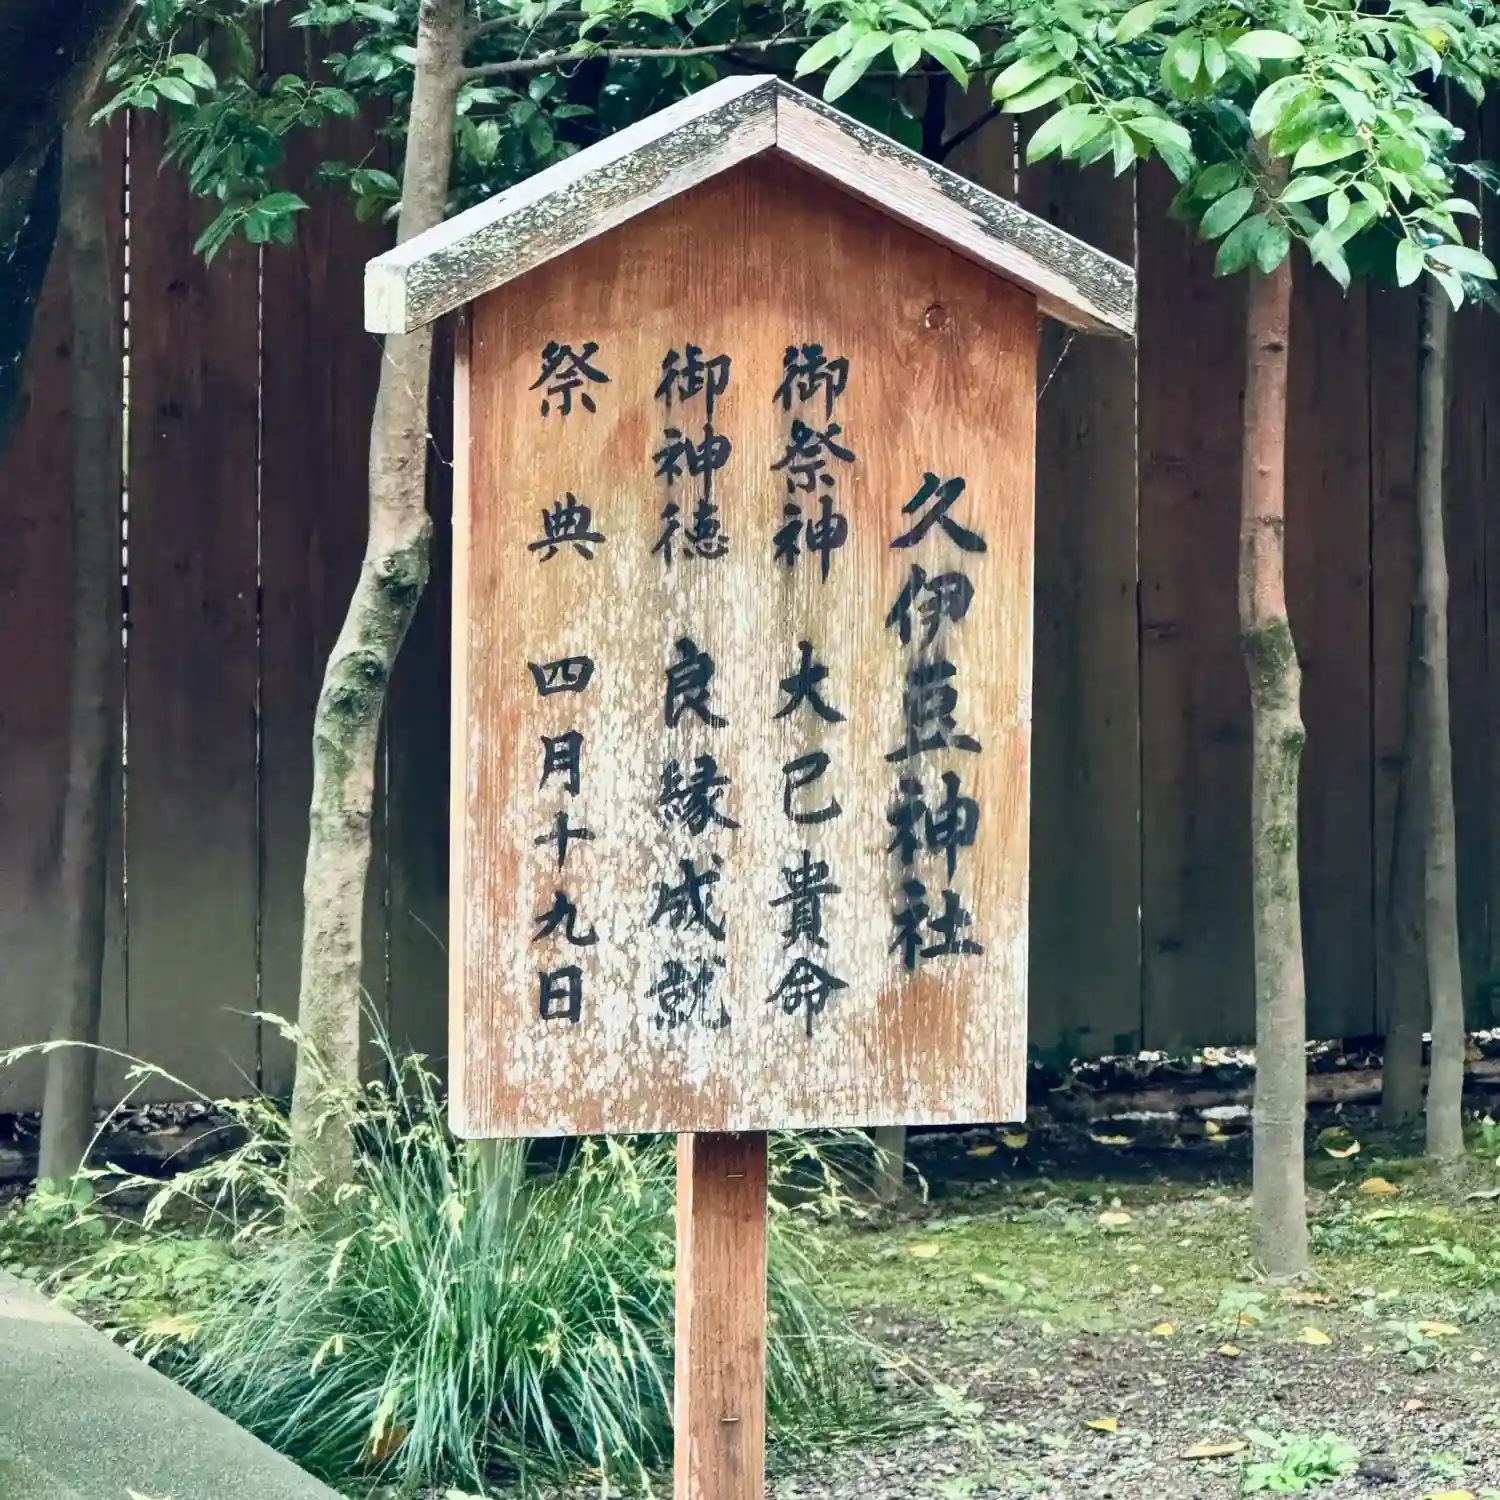 久伊豆神社
御祭神 大已貴命
御神徳 良縁成就
祭典 四月十九日